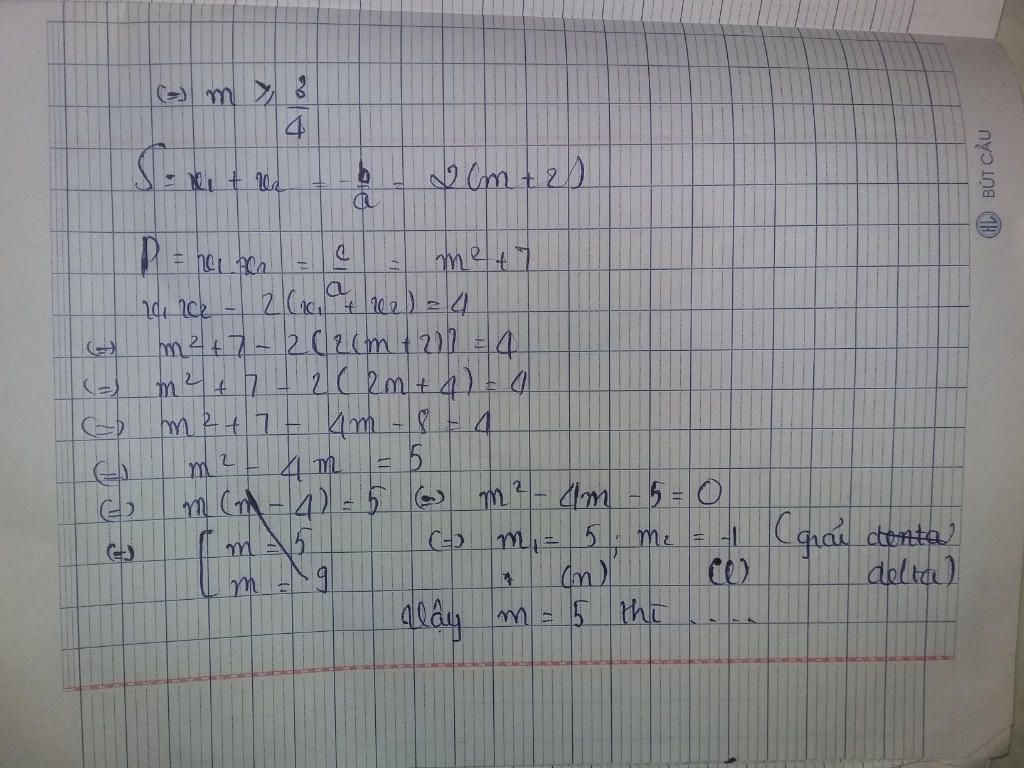 (=) m ≥ 3/4
S = x₁ + x₂ = -b/a = 2(m+2)
P = x₁.x₂ = c/a = m² + 7
x₁x₂ - 2(x₁ + x₂) = 4
(=) m² + 7 - 2(2(m+2)) = 4
(=) m² + 7 - 2(2m + 4) = 4
(=) m² + 7 - 4m - 8 = 4
(=) m² - 4m = 5
(=) m(m - 4) = 5 (=) m² - 4m - 5 = 0
(=) [ m = 5 (=) m₁ = 5 ; m₂ = -1 (giải denta
m = 9 (n) (l) delta)
Vậy m = 5 thì ....
HL BÚT CẦU